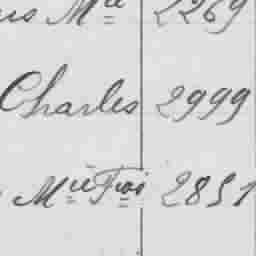 Mie 2269
Charles 2999
Mie Fois 2851